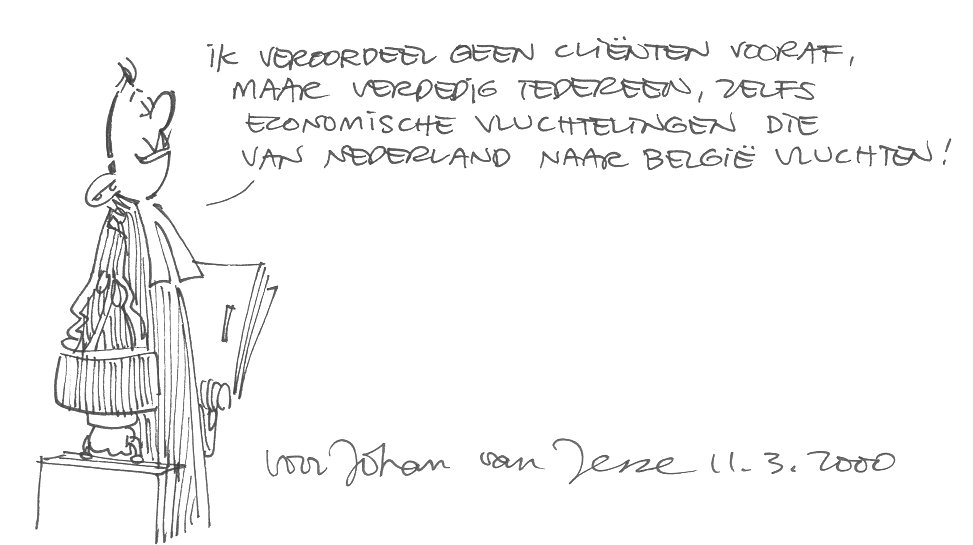 iK VEROORDEEL GEEN CLIËNTEN VOORAF,
MAAR VERDEDIG IEDEREEN, ZELFS
ECONOMISCHE VLUCHTELINGEN DIE
VAN NEDERLAND NAAR BELGIË VLUCHTEN!
voor Johan van Jesse 11.3.2000